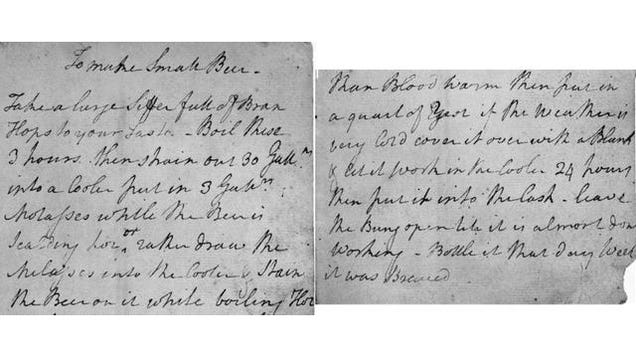 To make Small Beer -
Take a large Siffer full of Bran
Hops to your Taste - Boil these
3 hours. then strain out 30 Gallns
into a Cooler put in 3 Gallns
Molasses while the Beer is
Scalding hot or rather draw the
Molasses into the Cooler & Strain
the Beer on it while boiling Hot
than Blood warm then put in
a quart of Yest if the Weather is
very Cold cover it over with a Blank
& let it work in the Cooler 24 hours
then put it into the Cask - leave
the Bung open till it is almost don
working - Bottle it that day Week
it was Brewed